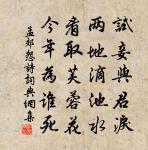 試妾與君淚
兩地滴池水
看取芙蓉花
今年為誰死
孟郊怨詩詞典網集